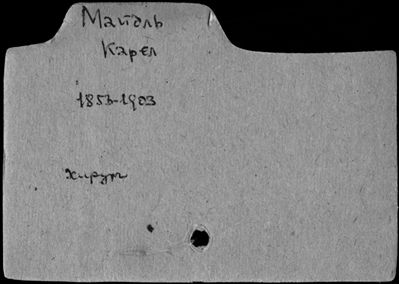 Майдль
Карел
1853-1903
хирург